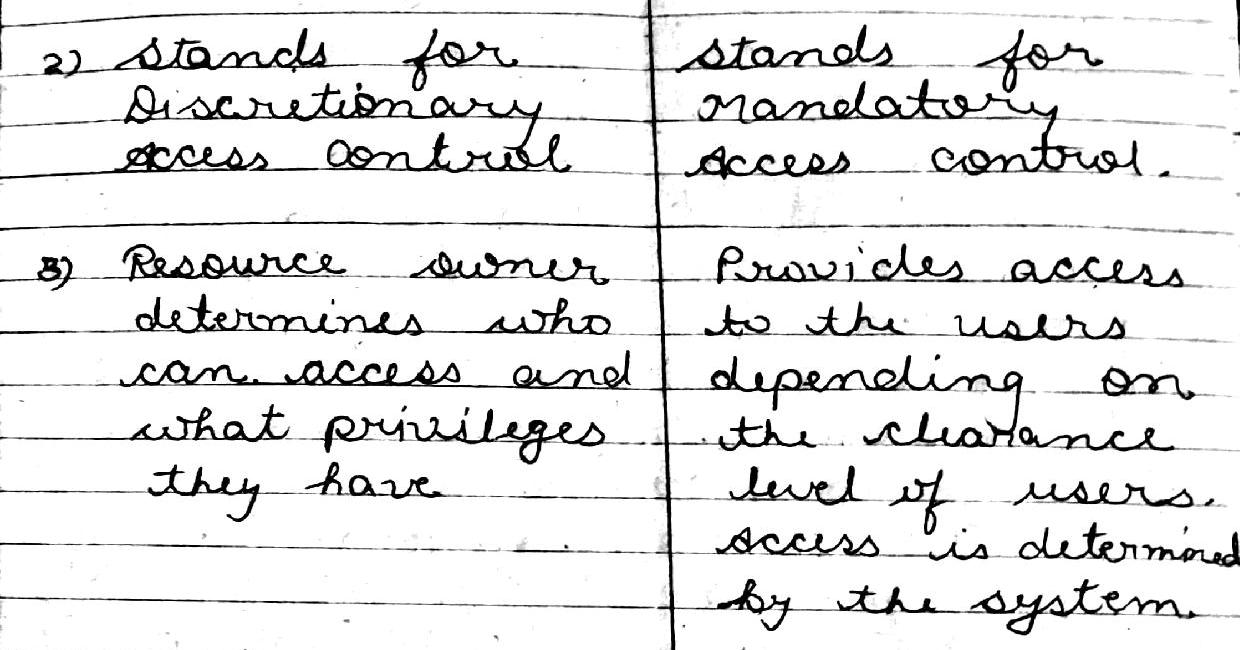 2) Stands for
Discretionary
Access Control
Stands for
Mandatory
Access control.
3) Resource owner
determines who
can access and
what privileges
they have
Provides access
to the users
depending on
the clearance
level of users.
Access is determined
by the system.